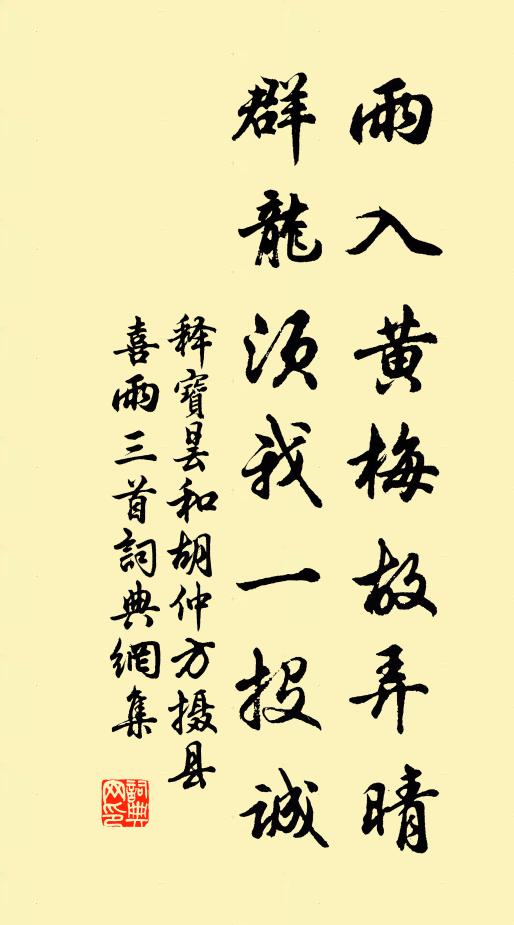 雨入黄梅故弄晴
群龍須我一投誠
释寶昙和胡仲方摄县
喜雨三首詞典網集
詞典网印